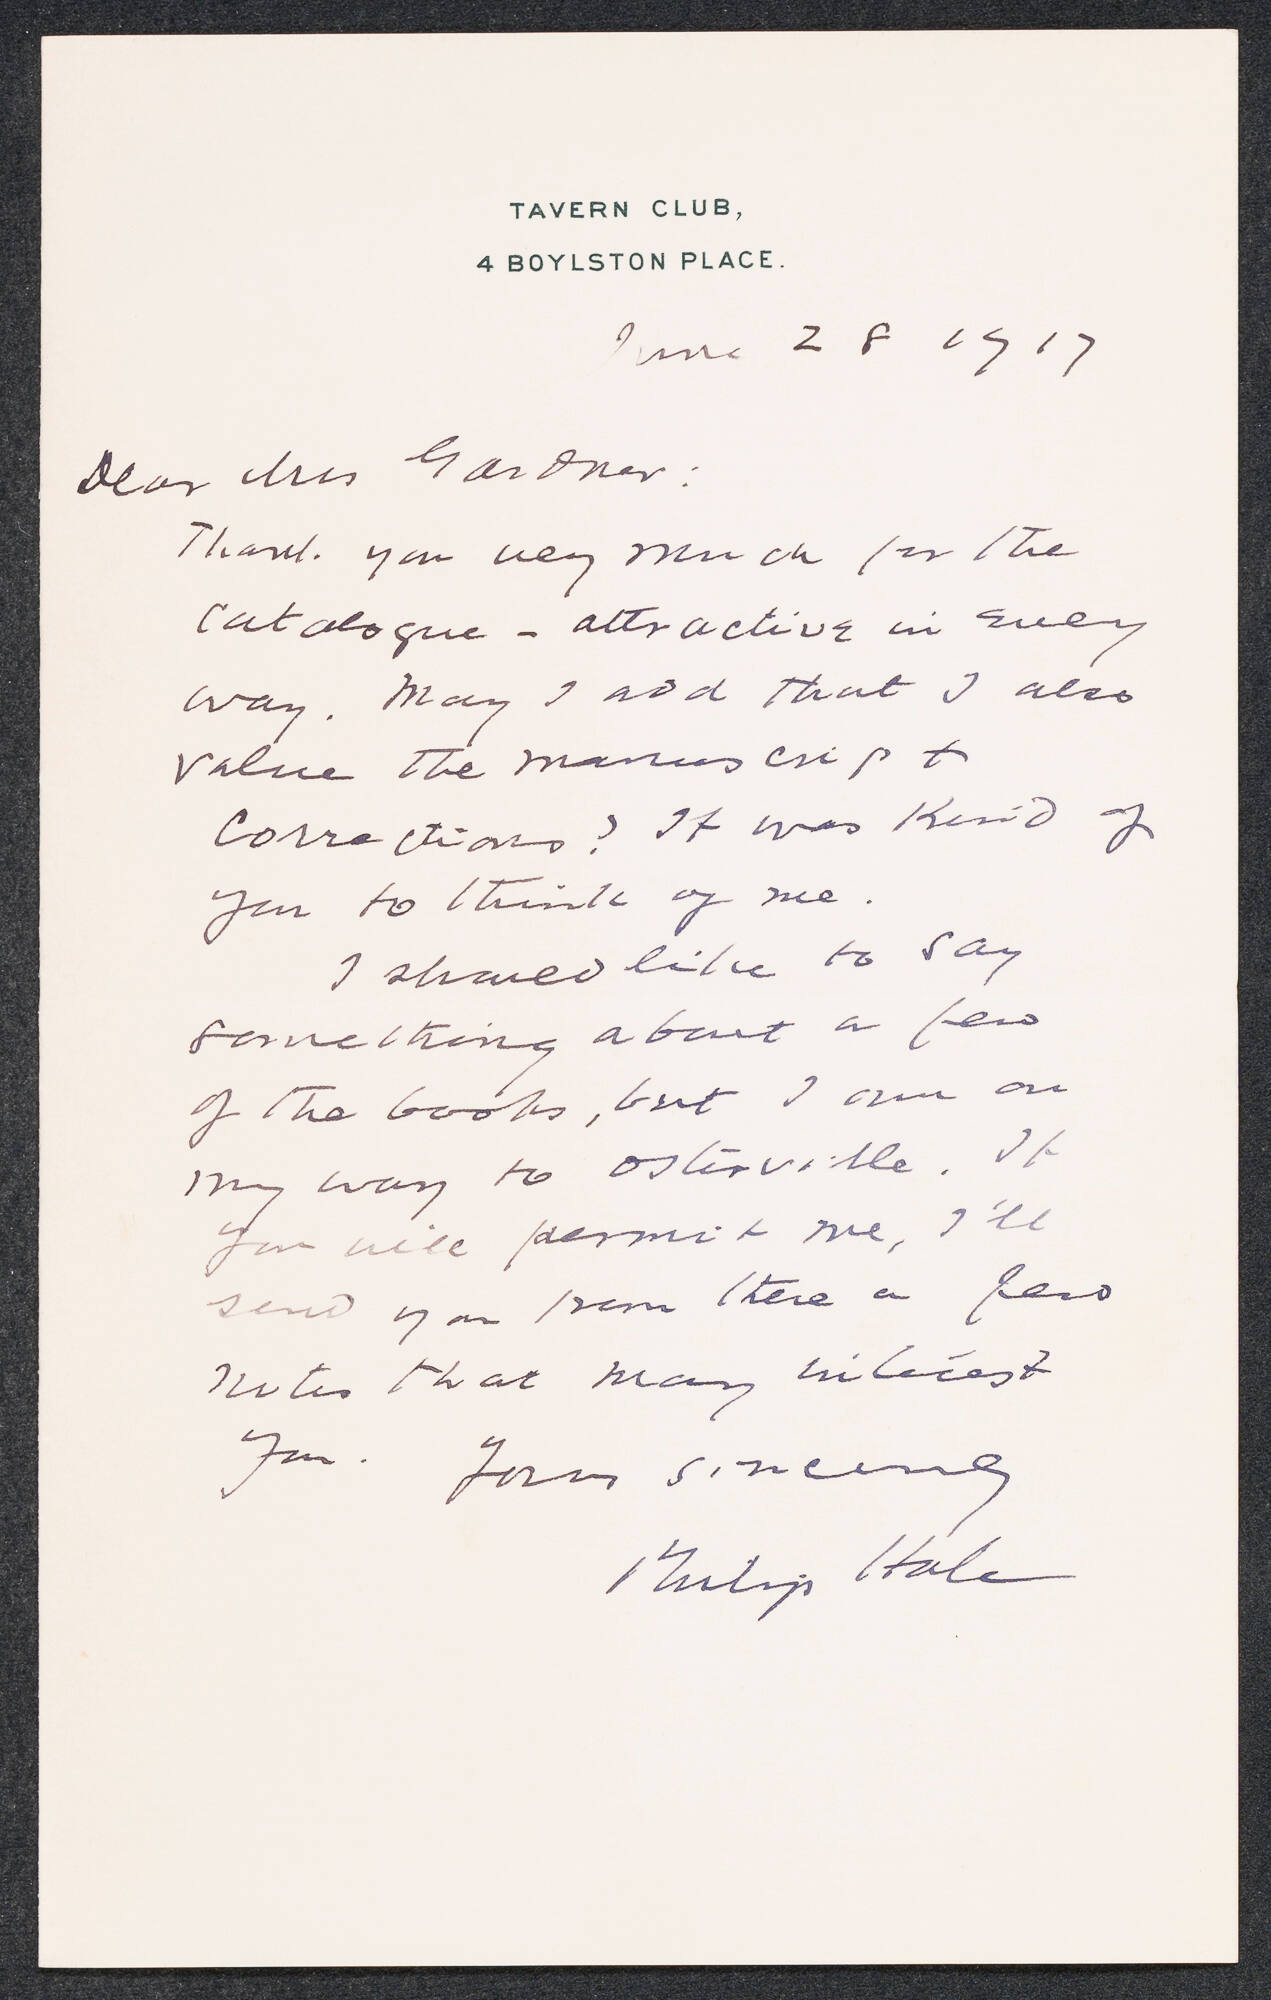 TAVERN CLUB,
4 BOYLSTON PLACE.
June 28 1917
Dear Mrs Gardner:
Thank you very much for the
catalogue - attractive in every
way. May I add that I also
value the manuscript
corrections? It was kind of
you to think of me.
I should like to say
something about a few
of the books, but I am on
my way to Osterville. If
you will permit me, I'll
send you from there a few
notes that may interest
you. Yours sincerely
Philip Hale